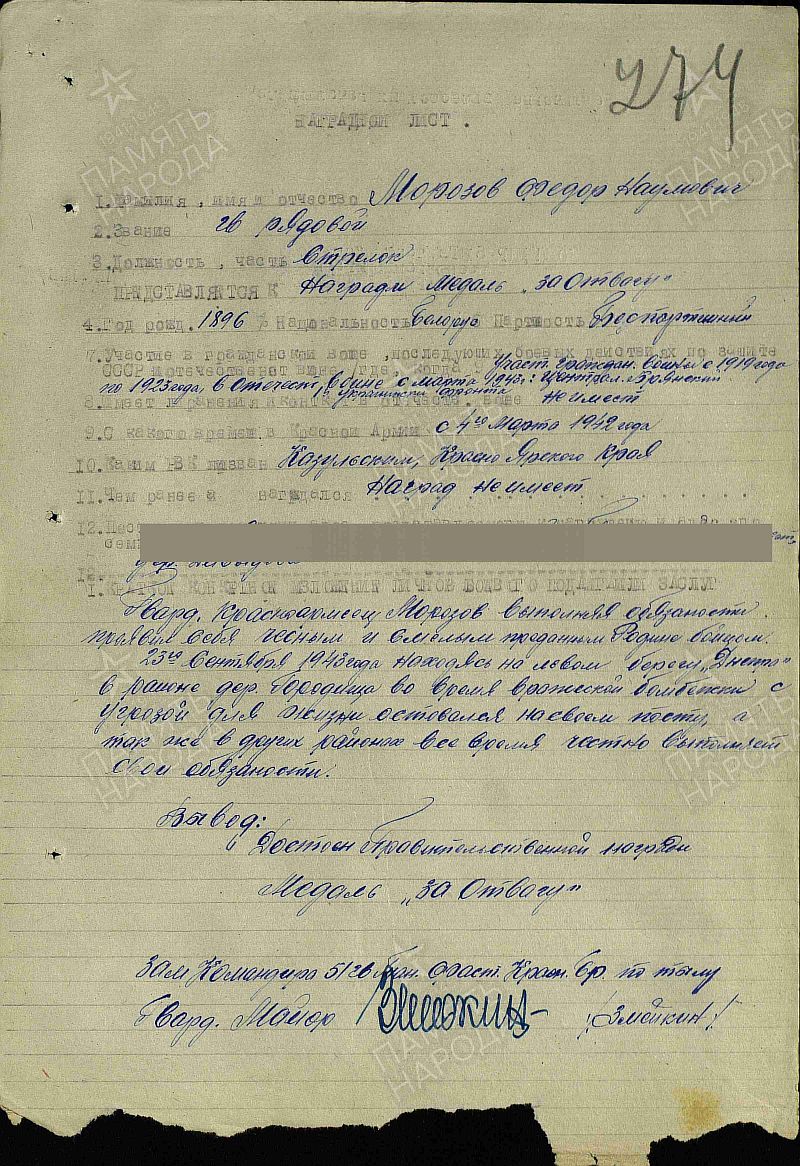 274
НАГРАДНОЙ ЛИСТ.
1. Фамилия, имя и отчество Морозов Федор Наумович
2. Звание гв рядовой
3. Должность, часть Стрелок
ПРЕДСТАВЛЯЕТСЯ К Награди Медаль "за Отвагу"
4. Год рожд. 1896 Национальность Белорус Партность Беспартийный
7. Участие в гражданской войне, последующих боевых действиях по защите
СССР и отечественной войне /где, когда/ Участ. Граждан. войны с 1919 года
по 1923 года, в Отечест. войне с марта 1943 г. Централ. Брянский
и Украински фронта
8. Имеет ли ранения и контузии в отечеств. войне не имеет
9. С какого времени в Красной Армии с 4го Марта 1942 года
10. Каким РВК призван Казульским, Красно Ярского Края
11. Чем ранее награждался Наград не имеет
12.
13.
I. КРАТКОЕ КОНКРЕТНОЕ ИЗЛОЖЕНИЕ ЛИЧНОГО БОЕВОГО ПОДВИГА ИЛИ ЗАСЛУГ
Гвард. Красноармеец Морозов выполняя обязаности
проявил себя чесным и смелым преданным Родине бойцом.
23го Сентября 1943 года находясь на левом берегу "Днепр"
в районе дер. Городище во время вражеской бомбежки с
угрозой для жизни оставался на своем посту, а
так же в других районах все время честно выполняет
свои обязаности.
Вывод:
Достоен Правительственной награди
Медаль "за Отвагу"
Зам Командира 51 гв Тан. Фаст. Красн. Бр. по тылу
Гвард. Майор /Змейкин/